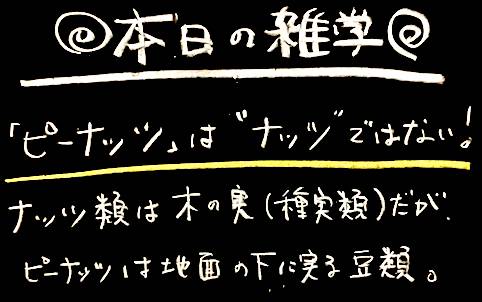 本日の雑学
「ピーナッツ」は"ナッツ"ではない!
ナッツ類は木の実(種実類)だが、
ピーナッツは地面の下に実る豆類。